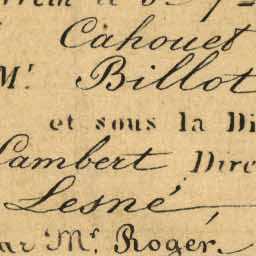 Cahouet
Mr. Billot
et sous la Di
Lambert, Dire
Lesné,
Mr. Roger.